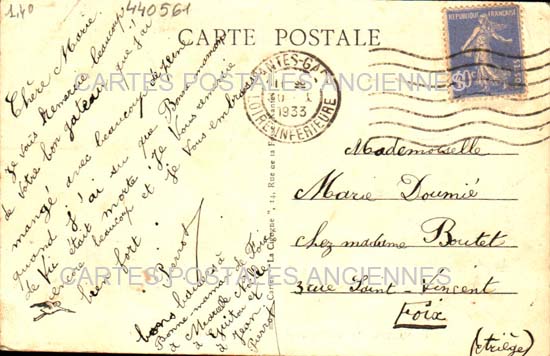 1,40
440561
CARTE POSTALE
NANTES-GARE
30 - 1
1933
LOIRE-INFERIEURE
REPUBLIQUE FRANÇAISE
CARTES POSTALES ANCIENNES
Chère Marie
Je vous remercie beaucoup
de votre bon gateau que j'ai
mangé avec beaucoup de
quand j'ai su que Bonne maman
de Vic était morte Je Vous envoie
beaucoup et Je Vous embrasse
bien fort.
Pierrot
bons baisers à
Bonne maman de Foix
à Marcelle
à
à Jean
Pierrot
Cartes "La Cigogne"
Mademoiselle
Marie Doumié
chez madame Boutet
3 rue Saint-Vincent
Foix
(Ariège)
CARTES POSTALES ANCIENNES